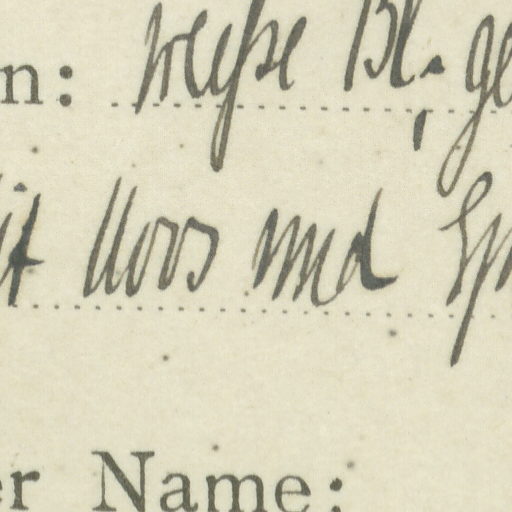 n: weiße Bl. ge
it Moos und Sp
er Name: